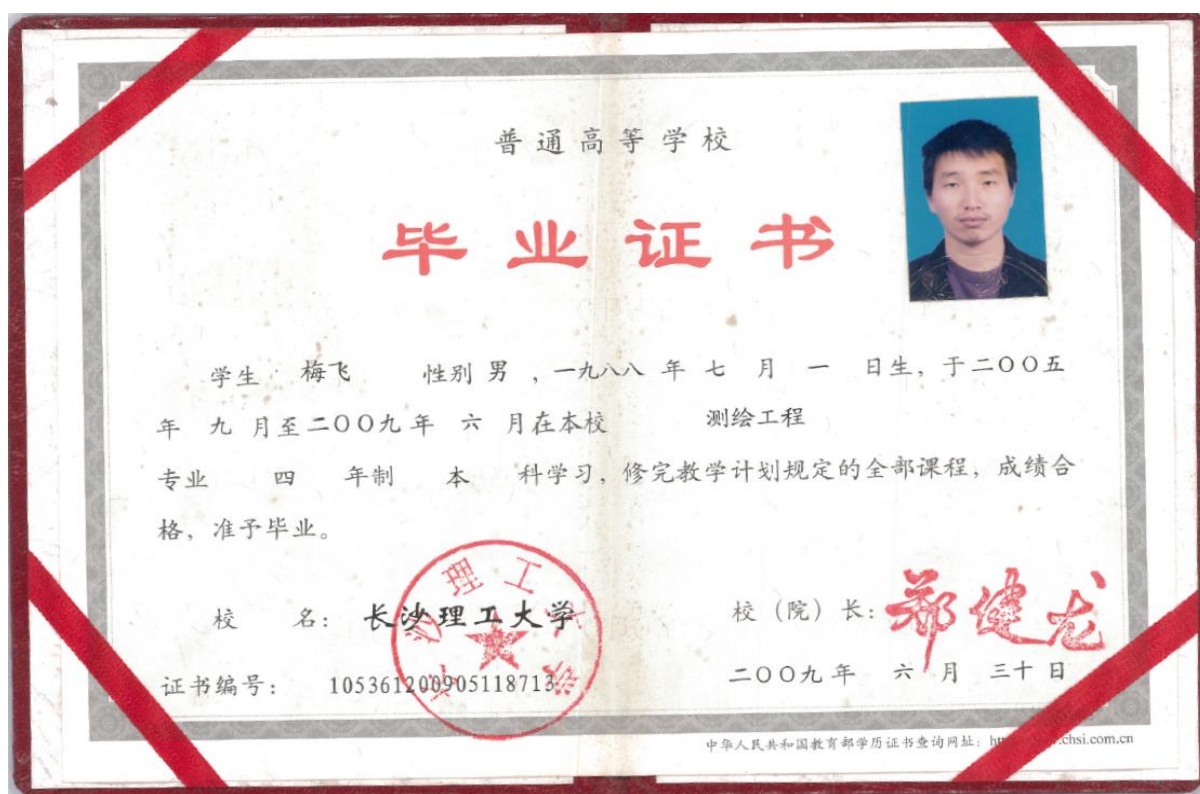 普通高等学校
毕业证书
学生 梅飞 性别 男 ，一九八八 年 七 月 一 日生，于二〇〇五
年 九 月至二〇〇九年 六 月在本校 测绘工程
专业 四 年制 本 科学习，修完教学计划规定的全部课程，成绩合
格，准予毕业。
校 名： 长沙理工大学
校（院）长： 郑健龙
证书编号： 105361200905118713
二〇〇九年 六 月 三十日
中华人民共和国教育部学历证书查询网址： chsi.com.cn
长沙理工大学